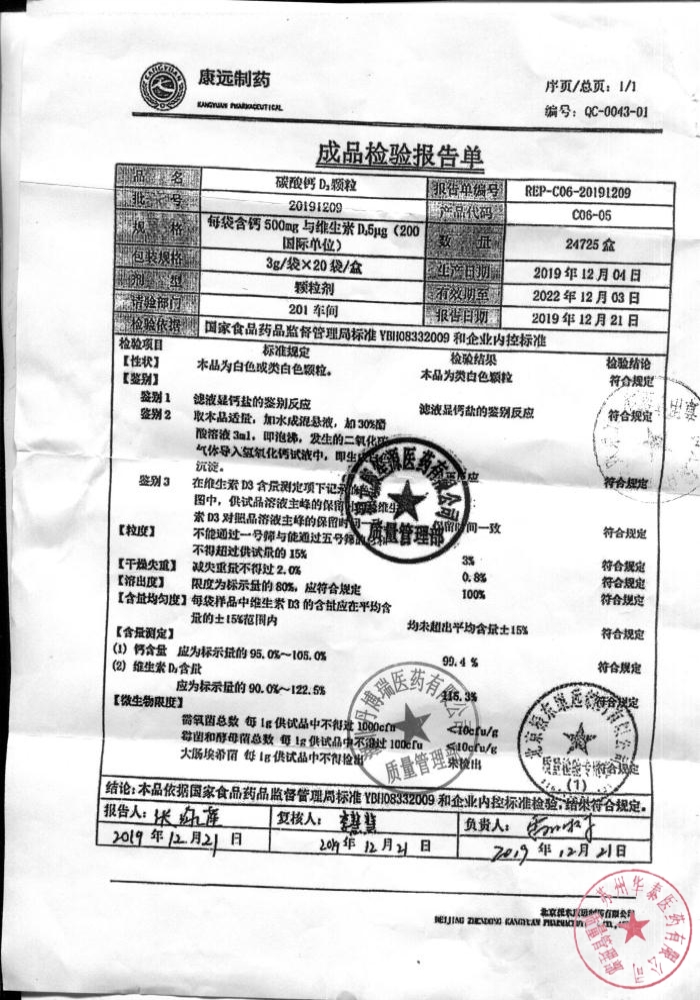 康远制药
KANGYUAN PHARMACEUTICAL
序页/总页：1/1
编号：QC-0043-01
成品检验报告单
品 名 碳酸钙 D₃颗粒 报告单编号 REP-C06-20191209
批 号 20191209 产品代码 C06-05
规 格 每袋含钙 500mg 与维生素 D₃5μg（200国际单位） 数 量 24725 盒
包装规格 3g/袋×20 袋/盒 生产日期 2019 年 12 月 04 日
剂 型 颗粒剂 有效期至 2022 年 12 月 03 日
请验部门 201 车间 报告日期 2019 年 12 月 21 日
检验依据 国家食品药品监督管理局标准 YBH08332009 和企业内控标准
检验项目 标准规定 检验结果 检验结论
【性状】 本品为白色或类白色颗粒。 本品为类白色颗粒 符合规定
【鉴别】
鉴别 1 滤液显钙盐的鉴别反应 滤液显钙盐的鉴别反应 符合规定
鉴别 2 取本品适量，加水成混悬液，加 30%醋
酸溶液 3ml，即泡沸，发生的二氧化碳
气体导入氢氧化钙试液中，即生成白色
沉淀。
鉴别 3 在维生素 D3 含量测定项下记录的色 符合规定
图中，供试品溶液主峰的保留
素 D3 对照品溶液主峰的保留时间一 保留时间一致 符合规定
【粒度】 不能通过一号筛与能通过五号筛
不得超过供试量的 15% 3% 符合规定
【干燥失重】 减失重量不得过 2.0% 0.8% 符合规定
【溶出度】 限度为标示量的 80%，应符合规定 100% 符合规定
【含量均匀度】每袋样品中维生素 D3 的含量应在平均含
量的±15%范围内 均未超出平均含量±15% 符合规定
【含量测定】
(1) 钙含量 应为标示量的 95.0%～105.0% 99.4 % 符合规定
(2) 维生素 D₃含量
应为标示量的 90.0%～122.5% 115.3% 符合规定
【微生物限度】
需氧菌总数 每 1g 供试品中不得过 1000cfu <10cfu/g
霉菌和酵母菌总数 每 1g 供试品中不得过 100cfu <10cfu/g
大肠埃希菌 每 1g 供试品中不得检出 未检出
质量管理部
质量管理部
(1)
结论：本品依据国家食品药品监督管理局标准 YBH08332009 和企业内控标准检验，结果符合规定。
报告人： 复核人： 负责人：
2019 年 12 月 21 日 2019 年 12 月 21 日 2019 年 12 月 21 日